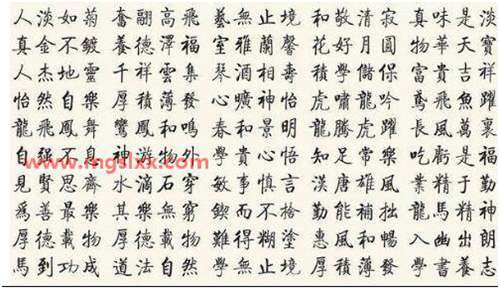 人淡如菊 奮翮高飛 藝無止境 和敬清寂 真味是淡
真金不鍍 養德澤福 室雅蘭馨 花好月圓 物華天寶
人杰地靈 千祥雲集 琴酒相壽 積學儲保 富貴吉祥
怡然自樂 厚積薄發 心曠神怡 虎嘯龍吟 鳶飛魚躍
龍飛鳳舞 鸞鳳和鳴 春和景明 龍騰虎躍 長風萬裏
自強不息 神游物外 學貴心悟 知足常樂 吃虧是福
www.mgslxx.com
見賢思齊 水滴石穿 敏事慎言 漢唐雄風 業精于勤
爲善最樂 其樂無窮 鍥而不捨 勤能補拙 龍馬精神
厚德載物 難得糊塗 惠風和暢
馬到功成 道法自然 學無止境 厚積薄發 學書養志